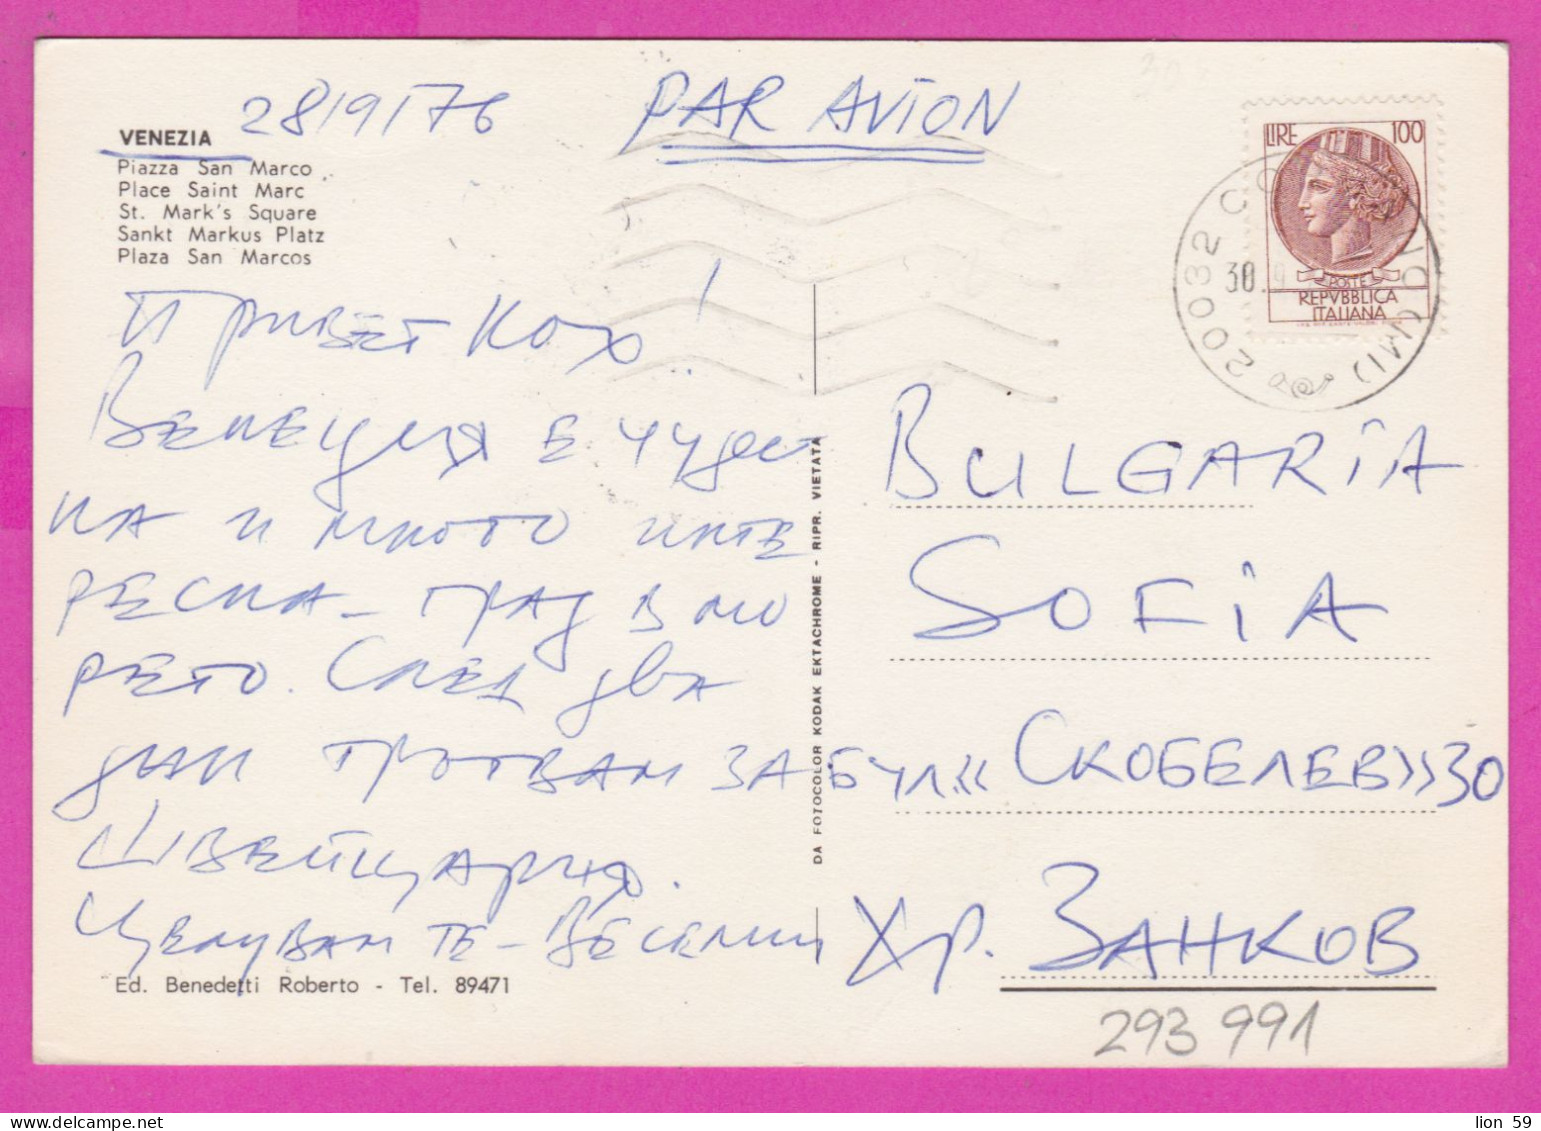 28/9/76
PAR AVION
VENEZIA
Piazza San Marco
Place Saint Marc
St. Mark's Square
Sankt Markus Platz
Plaza San Marcos
Привет Кох!
Венеция е чудес
на и много инте
ресна - град в мо
рето. След два
дни тръгвам за
Швейцария.
Целувам те - Веселин
Ed. Benedetti Roberto - Tel. 89471
DA FOTOCOLOR KODAK EKTACHROME - RIPR. VIETATA
LIRE 100
POSTE
REPVBBLICA
ITALIANA
20032
30.
(MI)
BULGARIA
SOFIA
БУЛ. «СКОБЕЛЕВ» 30
Хр. ЗАНКОВ
293 991
lion 59
delcampe.net